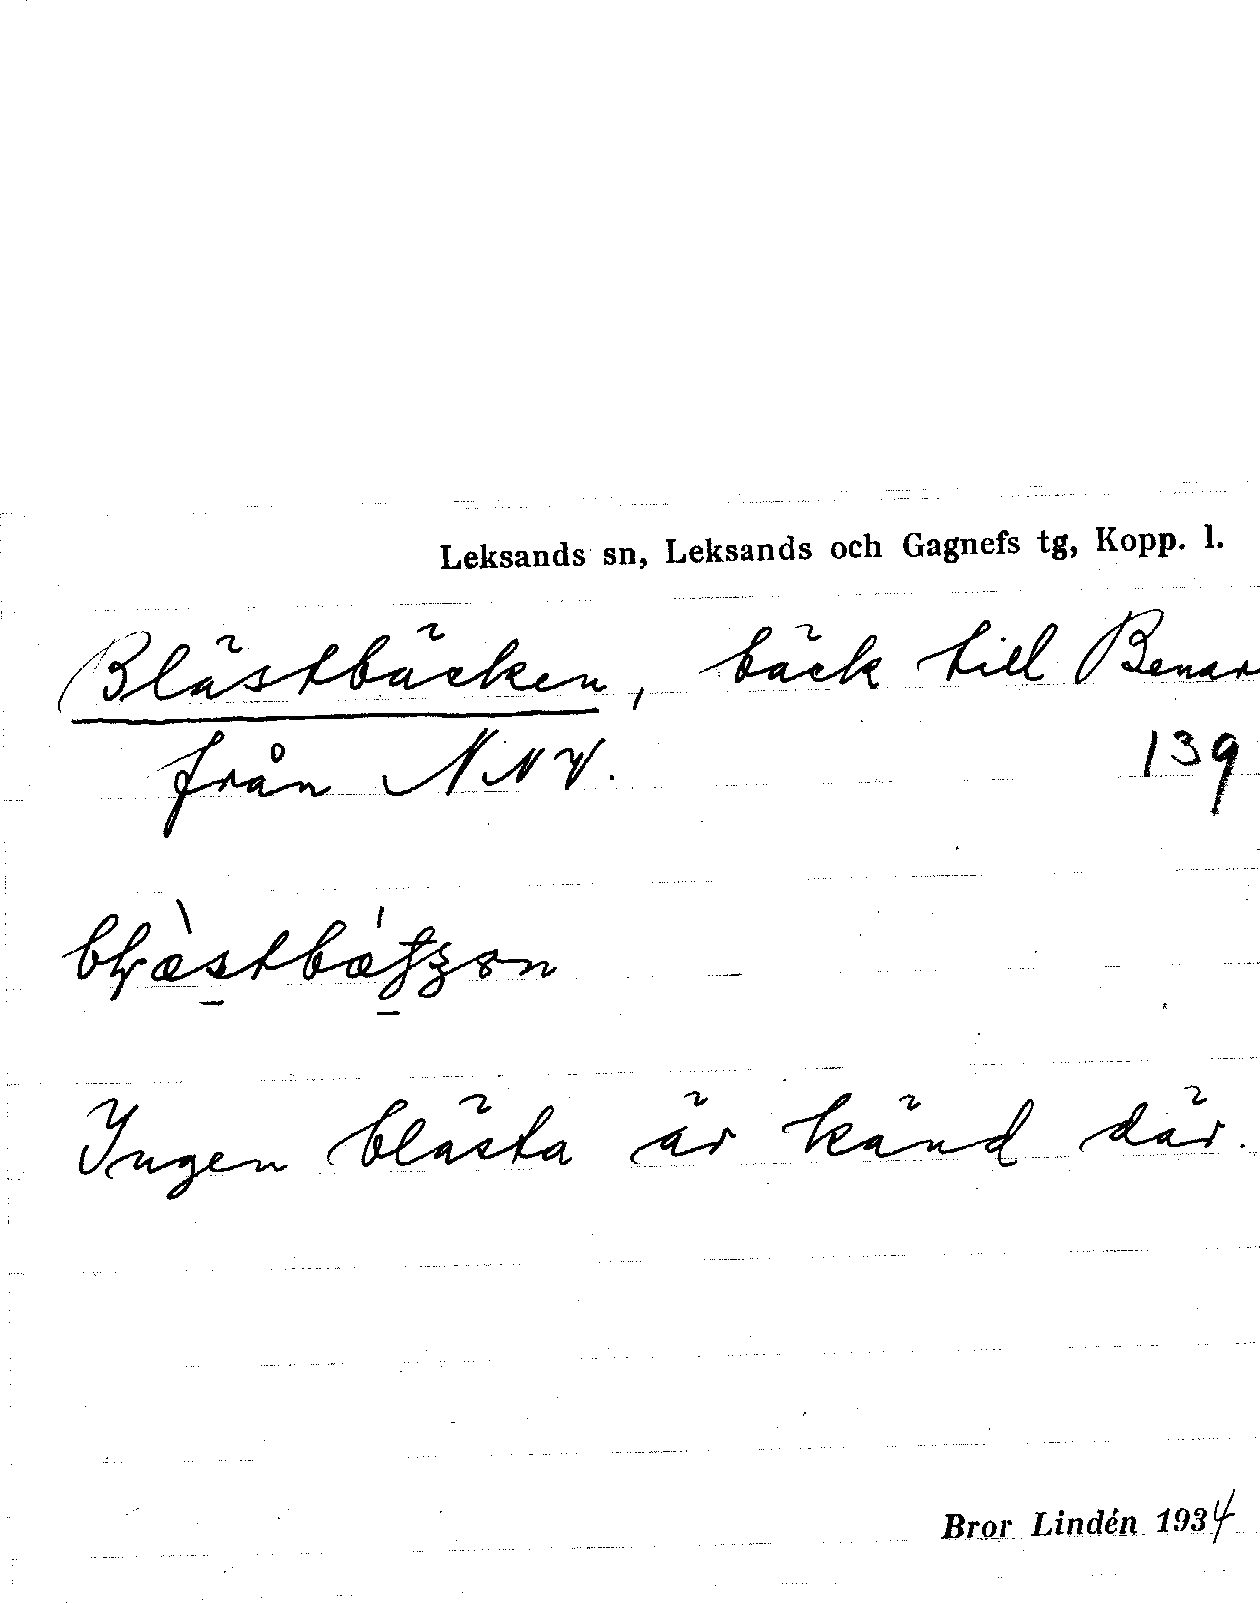 Leksands sn, Leksands och Gagnefs tg, Kopp. l.
Blästbäcken, bäck till Benar
från NNV.
139
Ingen blästa är känd där.
Bror Lindén 1934